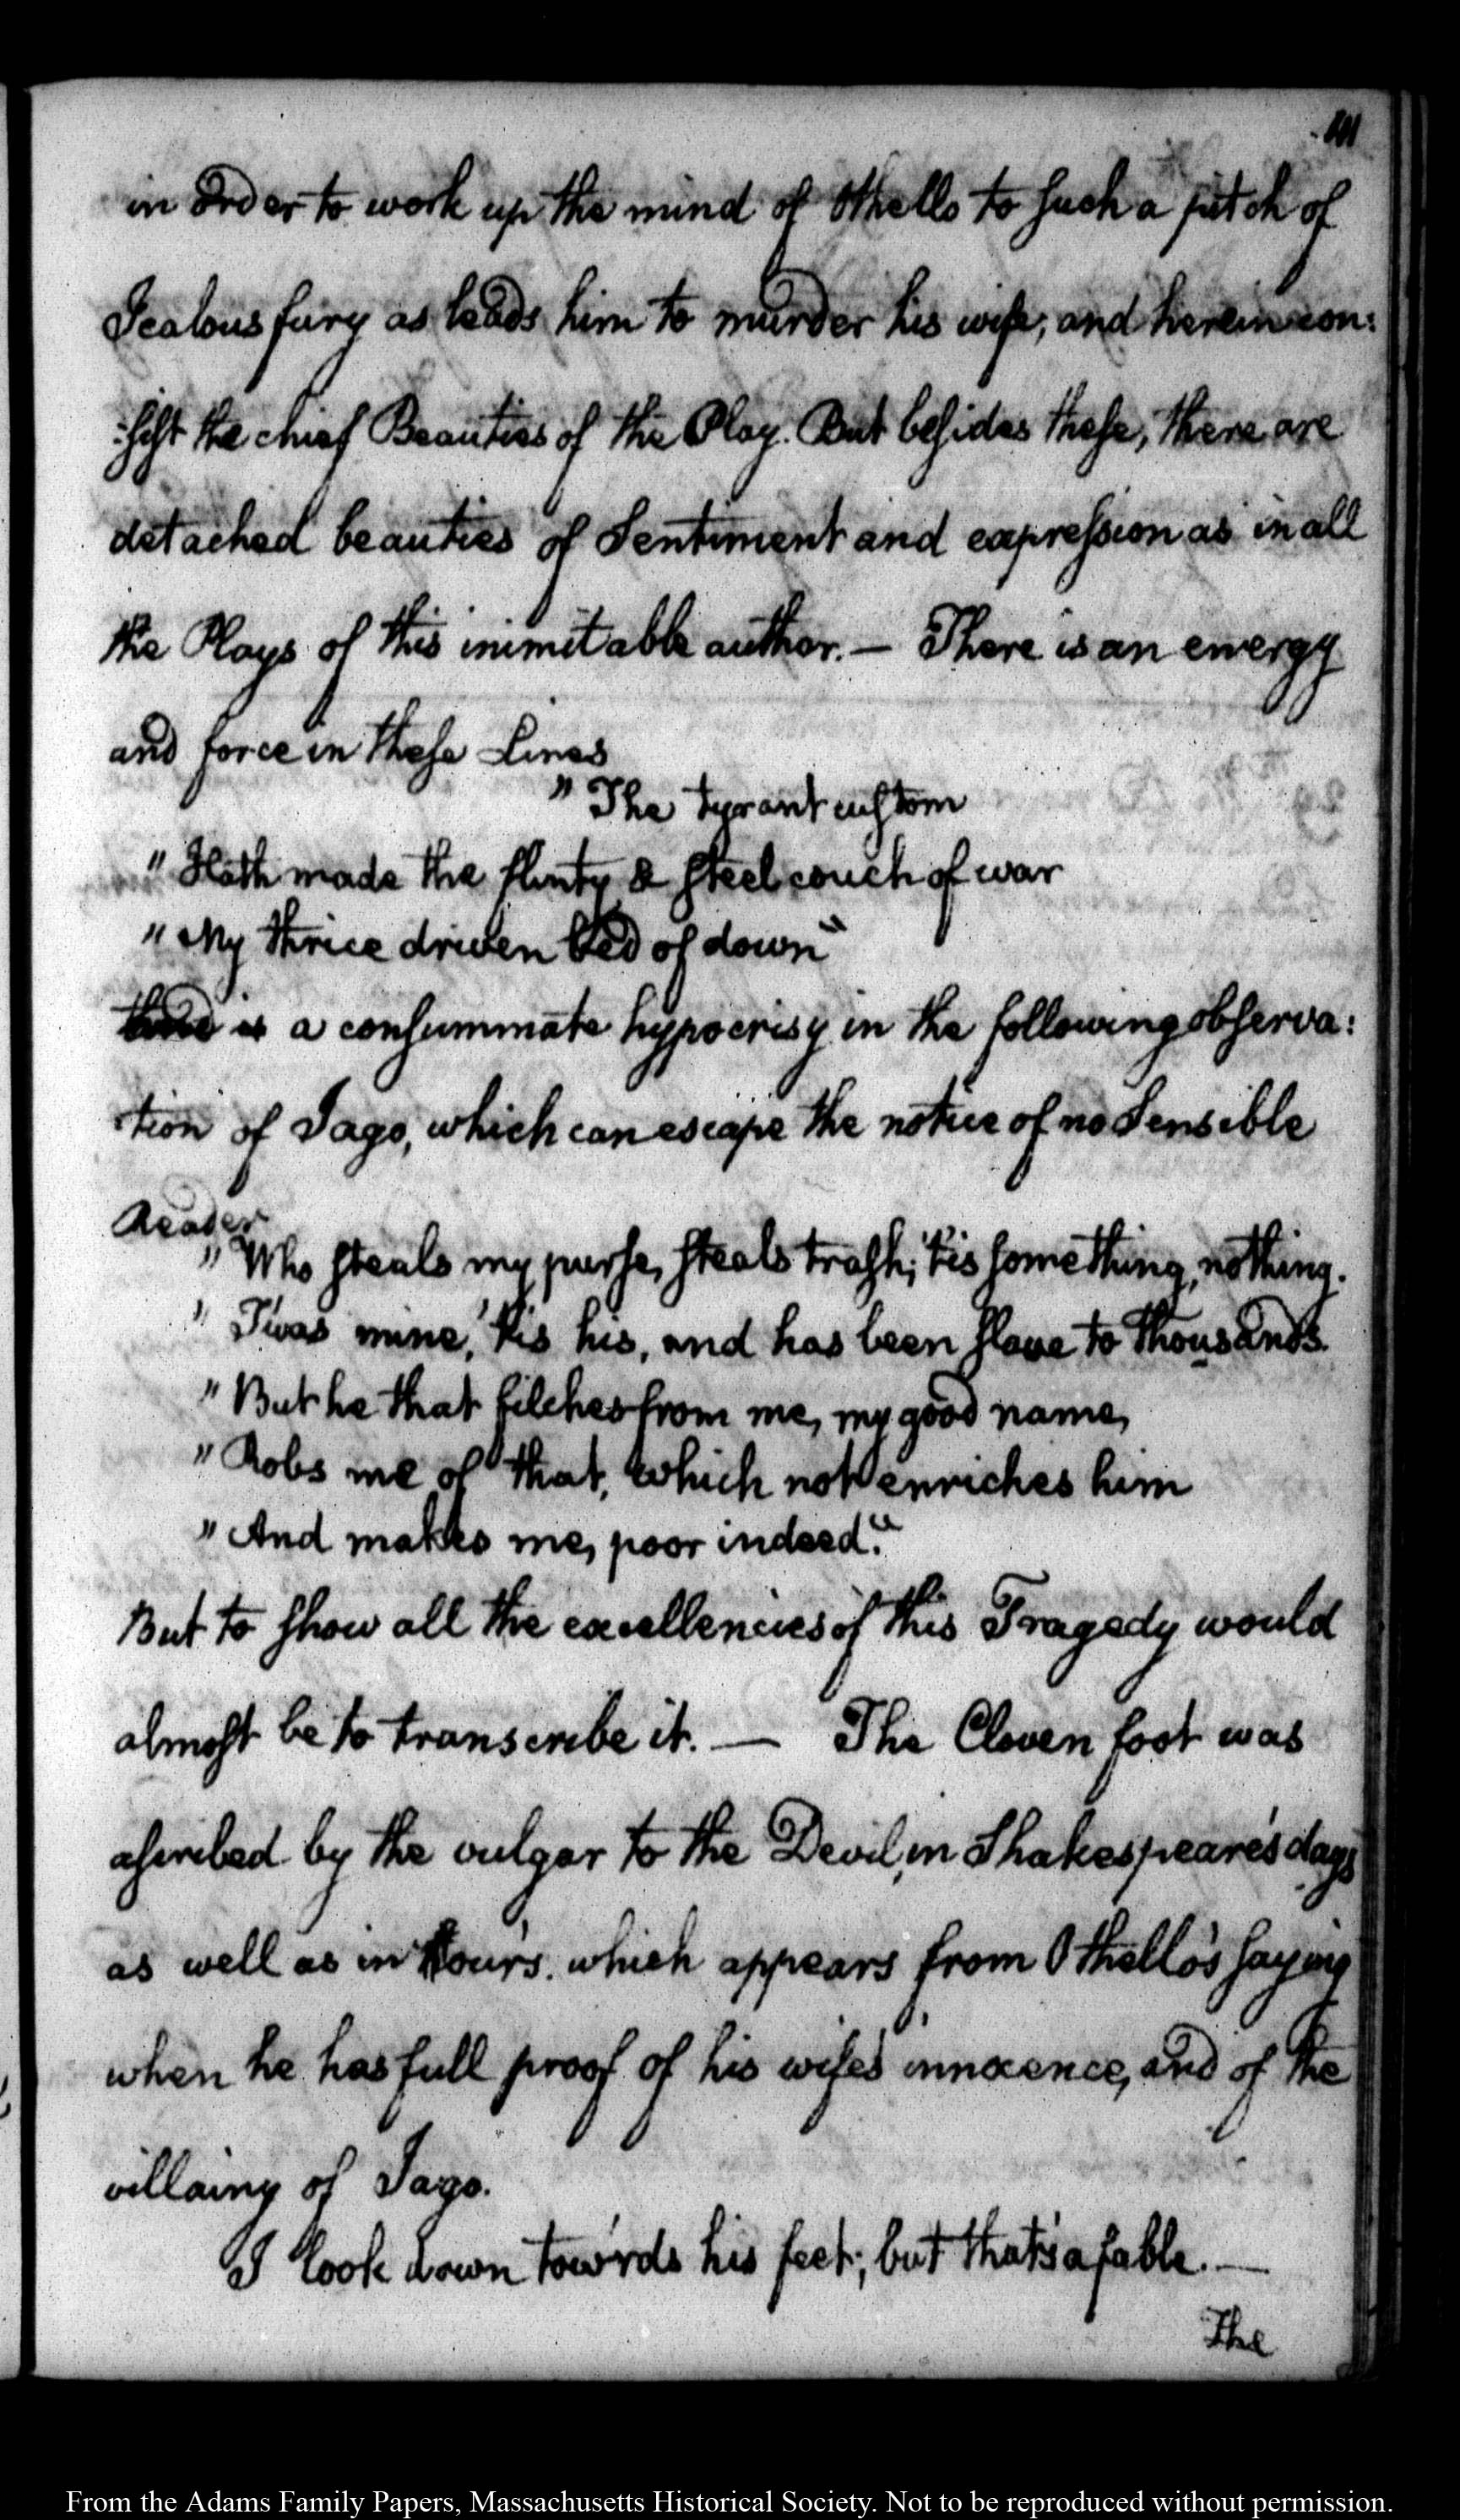 in Order to work up the mind of Othello to such a pitch of
Jealous fury as leads him to murder his wife; and herein con:
:sist the chief Beauties of the Play. But besides these, there are
detached beauties of Sentiment and expression as in all
the Plays of this inimitable author. — There is an energy
and force in these Lines
" The tyrant custom
" Hath made the flinty & steel couch of war
" My thrice driven bed of down"
is a consummate hypocrisy in the following observa:
:tion of Iago, which can escape the notice of no Sensible
Reader
" Who steals my purse, steals trash; 'tis something, nothing.
" 'Twas mine, 'tis his, and has been slave to thousands.
" But he that filches from me, my good name,
" Robs me of that, which not enriches him
" And makes me, poor indeed."
But to show all the excellencies of this Tragedy would
almost be to transcribe it. — The Cloven foot was
ascribed by the vulgar to the Devil, in Shakespeare's days
as well as in ours. which appears from Othello's saying
when he has full proof of his wife's innocence, and of the
villainy of Iago.
I look down tow'rds his feet; but that's a fable. —
The
From the Adams Family Papers, Massachusetts Historical Society. Not to be reproduced without permission.